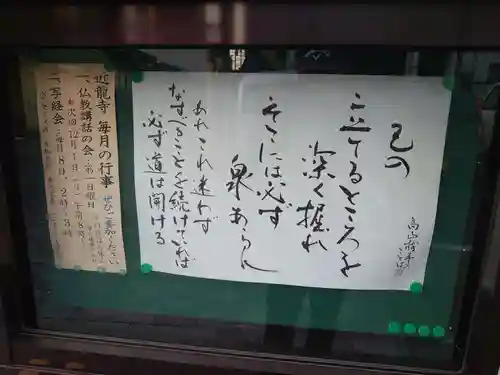 己の
立てるところを
深く掘れ
そこには必ず
泉あらん
高山樗牛の
ことば
あれこれ迷わず
なすことを続けていれば
必ず道は開ける
近龍寺 毎月の行事
ぜひご参加ください
一、仏教講話の会・第一日曜日
二、写経会・毎月8日、2時〜3時